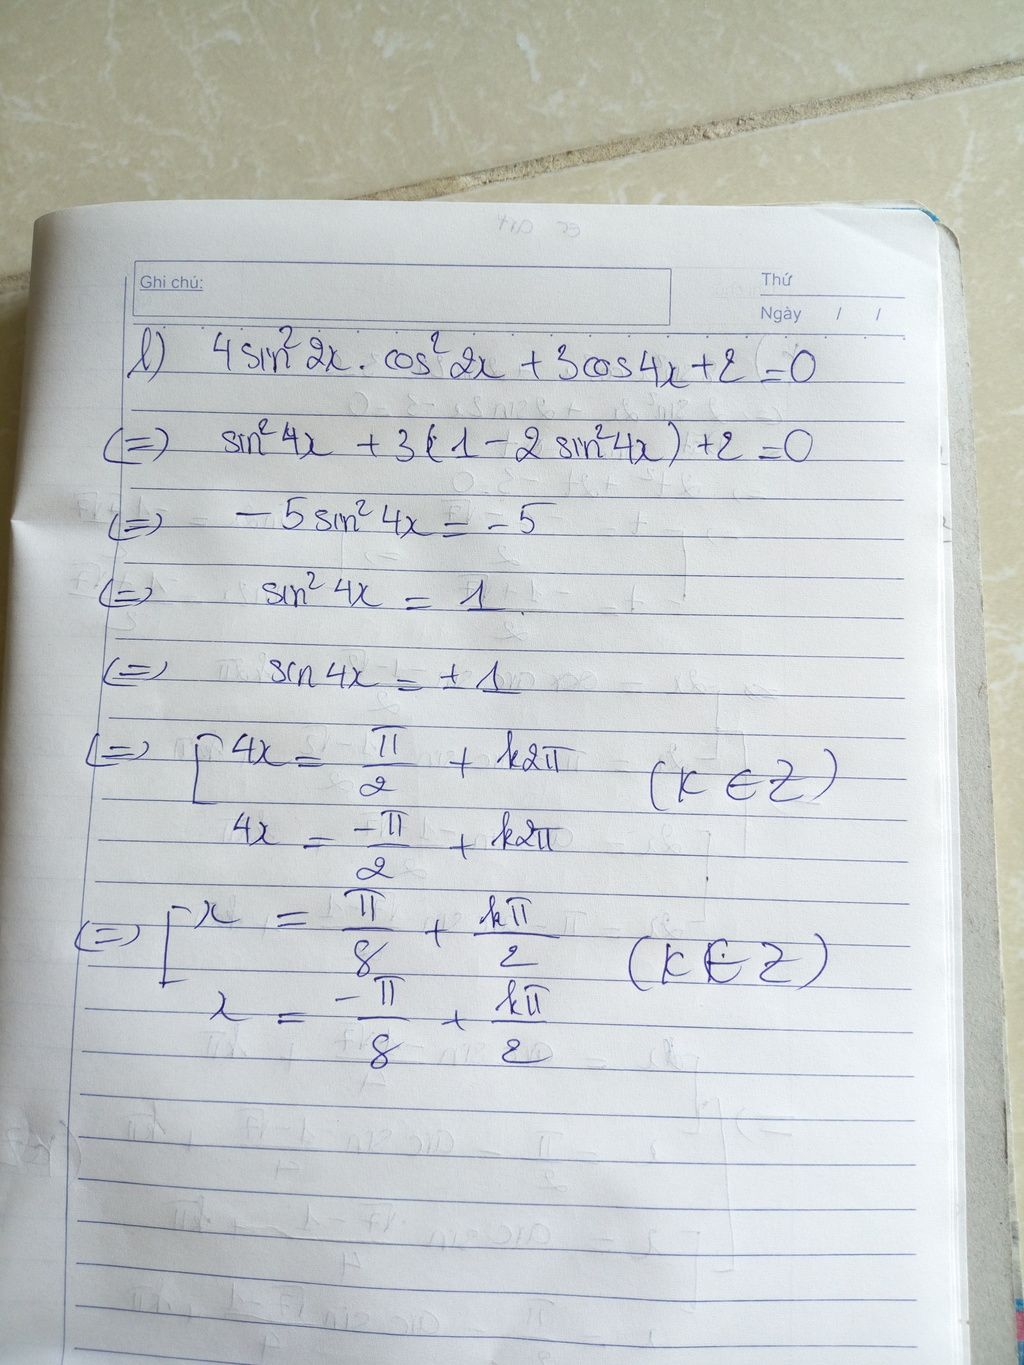 Ghi chú:
Thứ
Ngày / /
l) 4sin²2x . cos²2x + 3cos4x + 2 = 0
(=) sin²4x + 3(1 - 2sin²4x) + 2 = 0
(=) -5sin²4x = -5
(=) sin²4x = 1
(=) sin4x = ±1
(=) [ 4x = π/2 + k2π (K ∈ Z)
4x = -π/2 + k2π
(=) [ x = π/8 + kπ/2 (K ∈ Z)
x = -π/8 + kπ/2